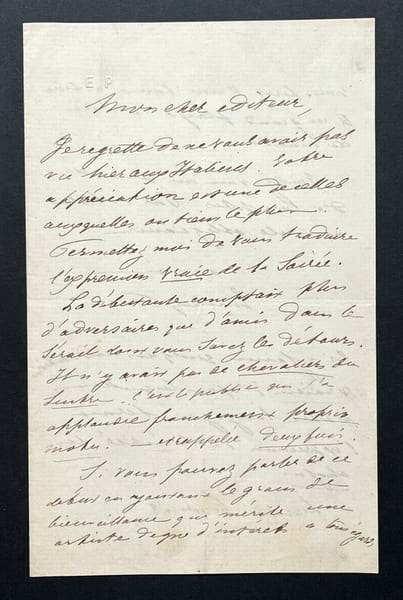 E P
Mon cher editeur,
Je regrette de ne vous avoir pas
vu hier aux Italiens. Votre
appréciation est une de celles
auxquelles on tient le plus.
Permettez moi de vous traduire
l'expression vraie de la Soirée.
La débutante comptait plus
d'adversaires que d'amis dans le
Sérail dont vous savez les détours.
Il n'y avait pas de chevaliers du
lustre. C'est le public qui l'a
applaudie franchement proprio
motu. — et rappelée deux fois.
Si vous pouvez parler de ce
début en ajoutant le grain de
bienveillance que mérite une
artiste digne d'intérêt a